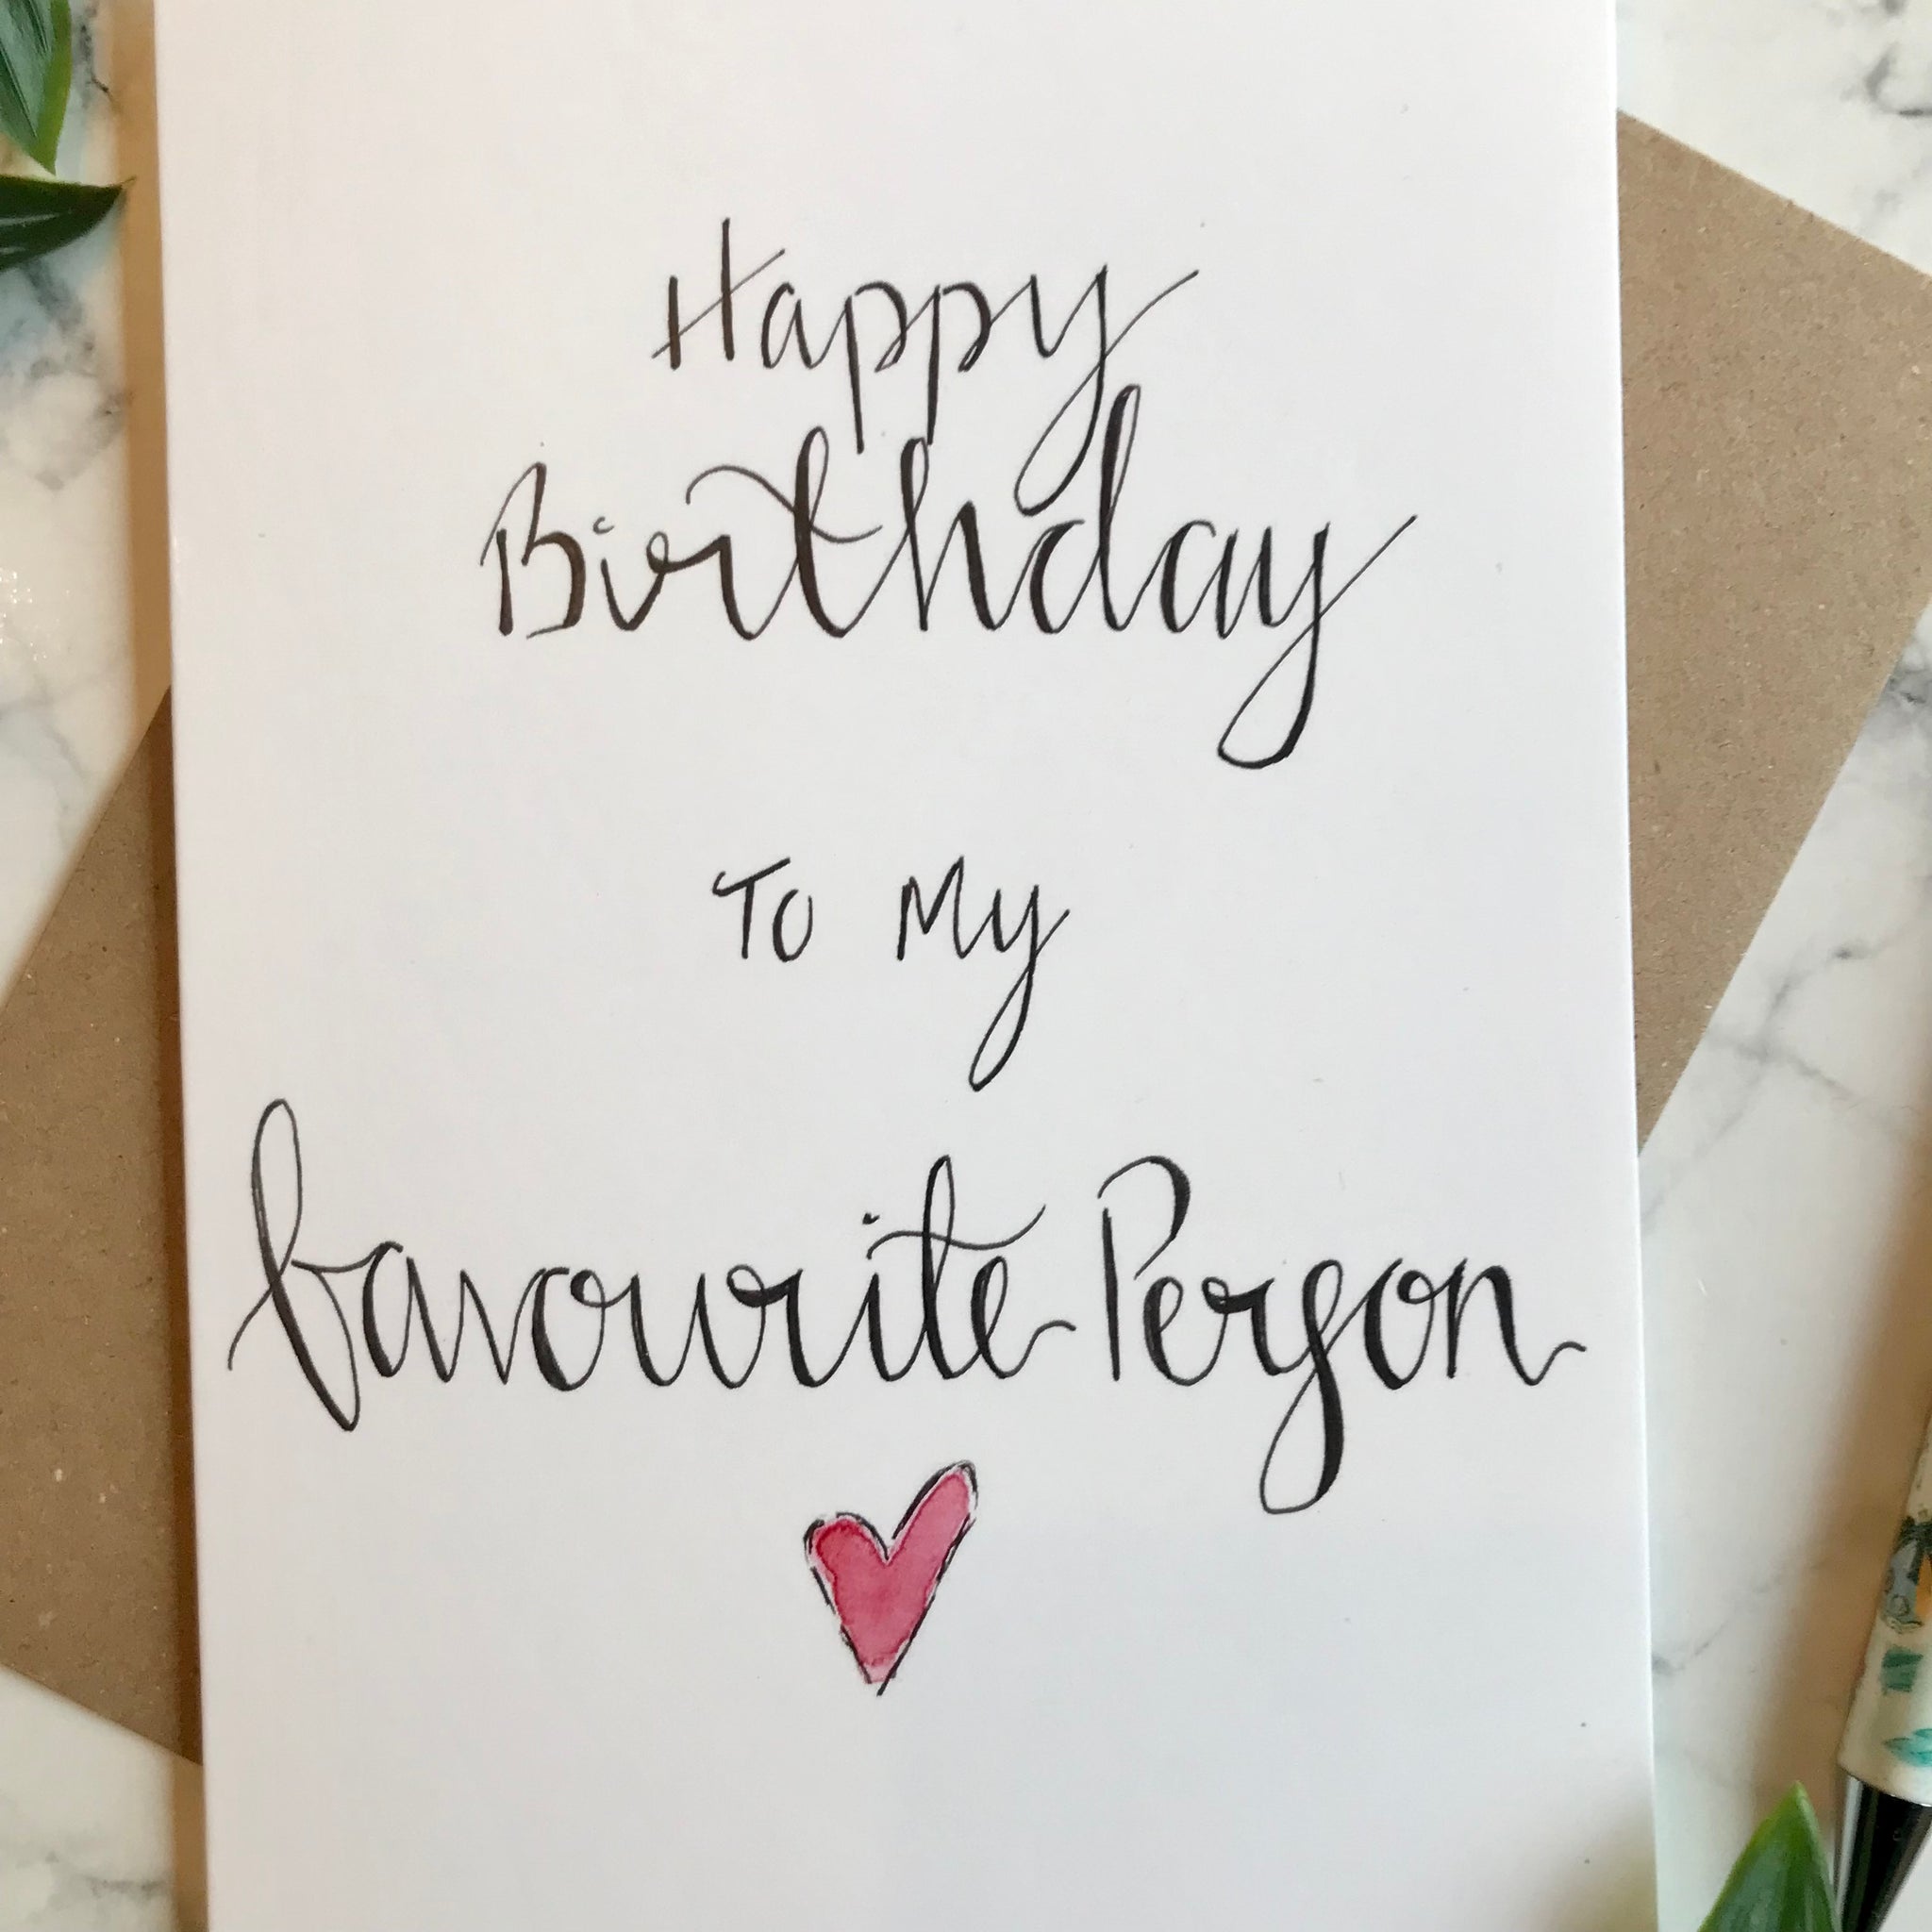 Happy
Birthday
To My
favourite Person